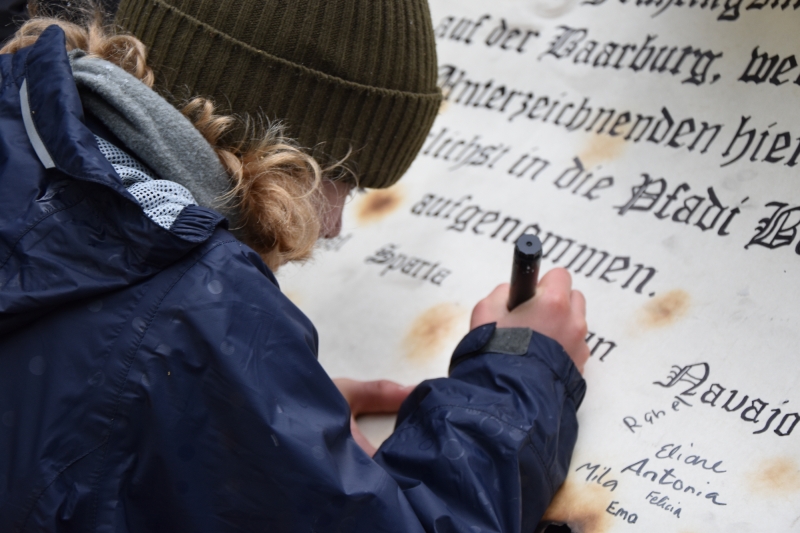 auf der Baarburg, wer
Unterzeichnenden hier
lichst in die Pfadi Ba
aufgenommen.
Sparta
Navajo
Eliane
Mila Antonia
Felicia
Ema